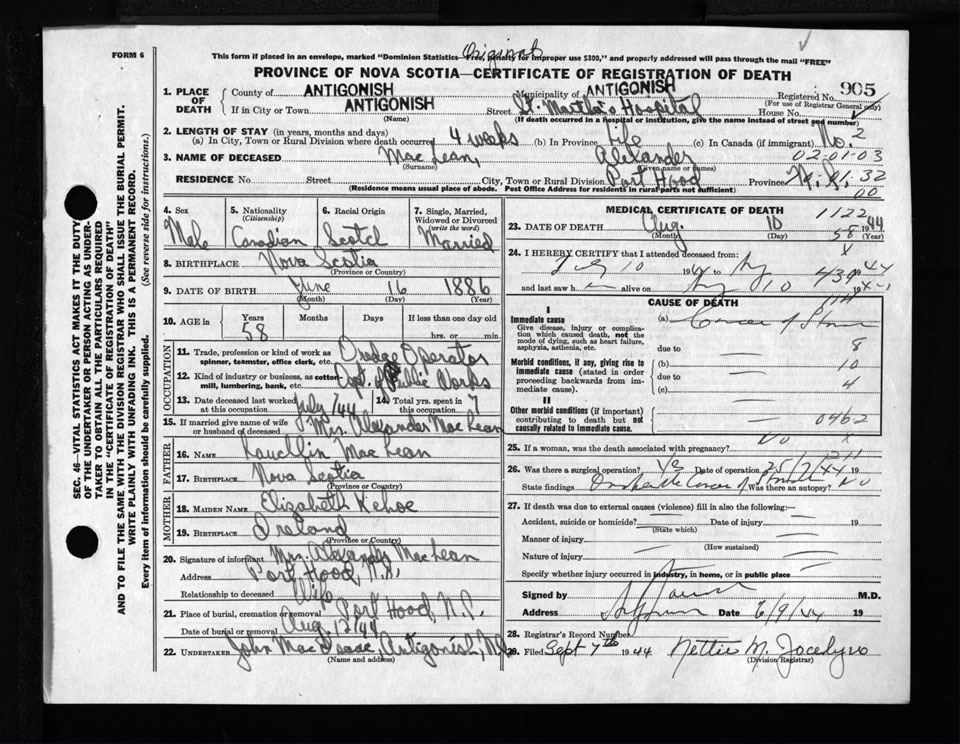 Original
FORM 6
This form if placed in an envelope, marked "Dominion Statistics—Free, penalty for improper use $300," and properly addressed will pass through the mail "FREE"
PROVINCE OF NOVA SCOTIA—CERTIFICATE OF REGISTRATION OF DEATH
1. PLACE OF DEATH County of ANTIGONISH Municipality of ANTIGONISH Registered No. 905
(For use of Registrar General only)
If in City or Town ANTIGONISH Street St. Martha's Hospital House No.
(Name) (If death occurred in a hospital or institution, give the name instead of street and number)
2. LENGTH OF STAY (in years, months and days)
(a) In City, Town or Rural Division where death occurred 4 weeks (b) In Province Life (c) In Canada (if immigrant) No. 2
3. NAME OF DECEASED MacLean, Alexander 02-01-03
(Surname) (Given name or names)
RESIDENCE No. Street City, Town or Rural Division Port Hood Province N.S. 01-32
(Residence means usual place of abode. Post Office Address for residents in rural parts not sufficient) 00
4. Sex Male
5. Nationality (Citizenship) Canadian
6. Racial Origin Scotch
7. Single, Married, Widowed or Divorced (write the word) Married
8. BIRTHPLACE Nova Scotia
(Province or Country)
9. DATE OF BIRTH June 16 1886
(Month) (Day) (Year)
10. AGE in Years Months Days If less than one day
58 hrs. or min.
OCCUPATION
11. Trade, profession or kind of work as spinner, teamster, office clerk, etc. Dredge Operator
12. Kind of industry or business, as cotton-mill, lumbering, bank, etc. Dept. of Public Works
13. Date deceased last worked at this occupation July/44
14. Total yrs. spent in this occupation 7
15. If married give name of wife or husband of deceased Mrs. Alexander MacLean
FATHER
16. NAME Lauchlin MacLean
17. BIRTHPLACE Nova Scotia
(Province or Country)
MOTHER
18. MAIDEN NAME Elizabeth Kehoe
19. BIRTHPLACE Ireland
(Province or Country)
20. Signature of informant Mrs. Alexander MacLean
Address Port Hood, N.S.
Relationship to deceased Wife
21. Place of burial, cremation or removal Port Hood, N.S.
Date of burial or removal Aug. 12/44
22. UNDERTAKER John MacIsaac, Antigonish, N.S.
(Name and address)
MEDICAL CERTIFICATE OF DEATH 1122
23. DATE OF DEATH Aug. 10 1944
(Month) (Day) 58 (Year)
24. I HEREBY CERTIFY that I attended deceased from: X
July 10 1944 to Aug 439 44
and last saw h alive on Aug 10 19
CAUSE OF DEATH
I
Immediate cause
Give disease, injury or complication which caused death, not the mode of dying, such as heart failure, asphyxia, asthenia, etc.
(a) Cancer of Stom
due to 8
Morbid conditions, if any, giving rise to immediate cause (stated in order proceeding backwards from immediate cause).
(b) 10
due to 4
(c)
II
Other morbid conditions (if important) contributing to death but not causally related to immediate cause. 0462
25. If a woman, was the death associated with pregnancy? No X
26. Was there a surgical operation? Yes Date of operation 25/7/44 19
State findings Cancer of Stomach Was there an autopsy? No
27. If death was due to external causes (violence) fill in also the following:—
Accident, suicide or homicide? Date of injury 19
(State which)
Manner of injury
(How sustained)
Nature of injury
Specify whether injury occurred in industry, in home, or in public place
Signed by M.D.
Address Date 6/9/44 19
28. Registrar's Record Number
29. Filed Sept 7th 1944 Nettie M. Jocelyn
(Division Registrar)
SEC. 46—VITAL STATISTICS ACT MAKES IT THE DUTY
OF THE UNDERTAKER OR PERSON ACTING AS UNDER-
TAKER TO OBTAIN ALL THE PARTICULARS REQUIRED
IN THE "CERTIFICATE OF REGISTRATION OF DEATH"
AND TO FILE THE SAME WITH THE DIVISION REGISTRAR WHO SHALL ISSUE THE BURIAL PERMIT.
WRITE PLAINLY WITH UNFADING INK. THIS IS A PERMANENT RECORD.
Every item of information should be carefully supplied. (See reverse side for instructions.)